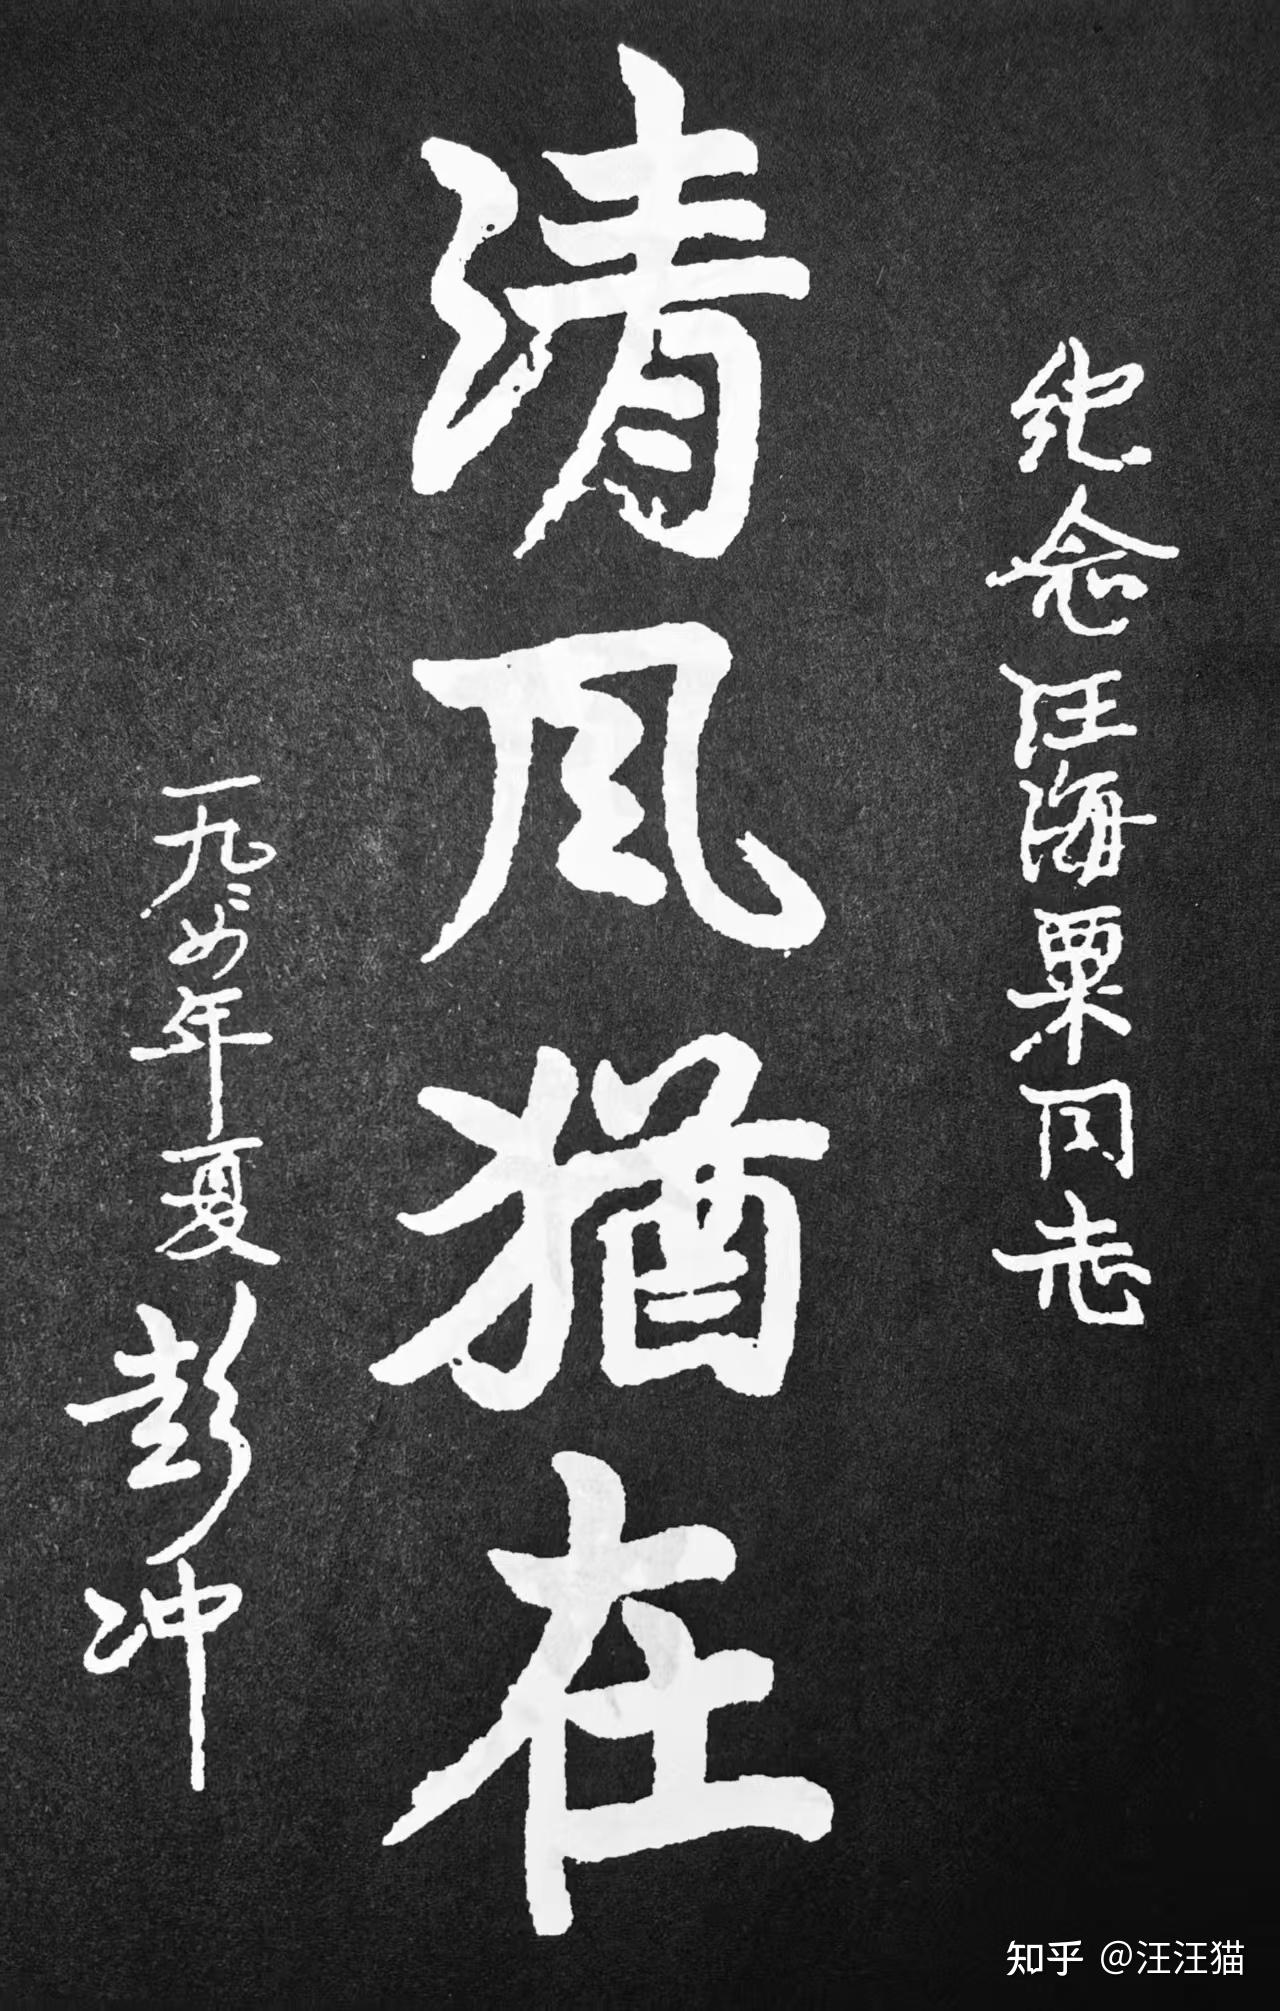 纪念汪海粟同志
清风猶在
一九々四年夏
彭冲
知乎 @汪汪猫